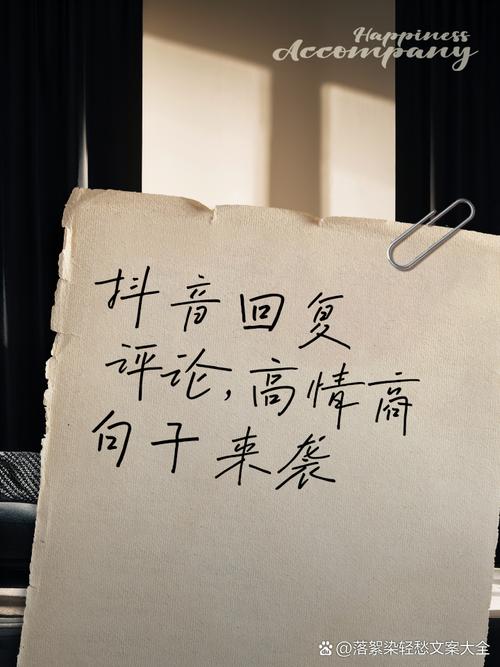 Happiness
Accompany
抖音回复
评论,高情商
句子来袭
@落絮染轻愁文案大全